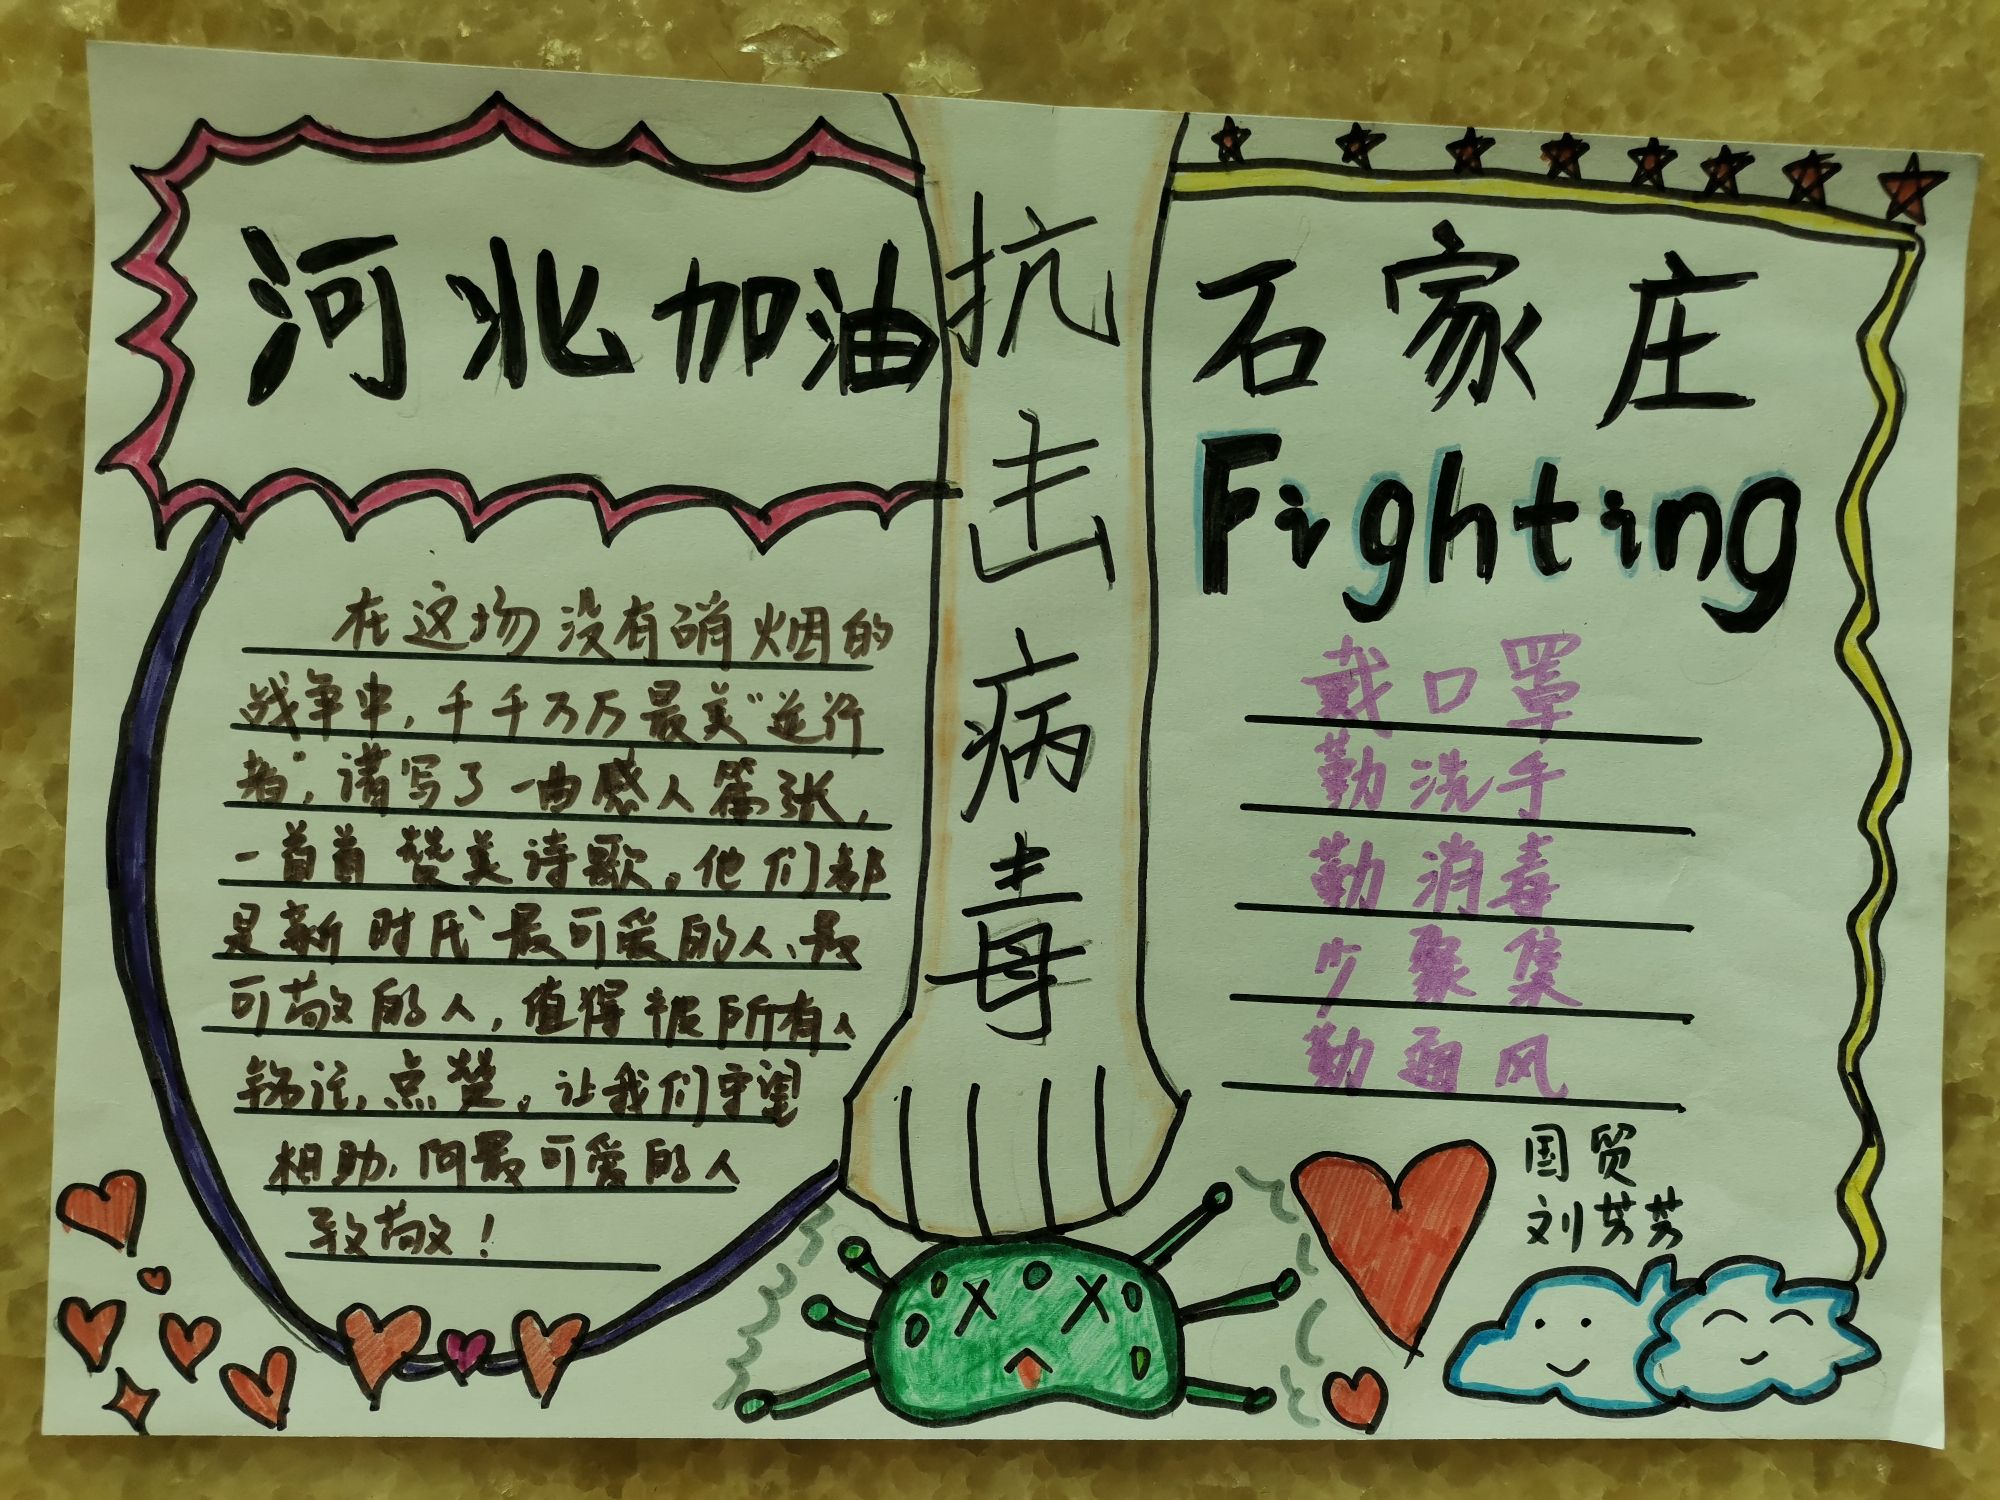 河北加油
在这场没有硝烟的
战争中，千千万万最美“逆行
者”，谱写了一曲感人篇张，
一首首赞美诗歌。他们都
是新时代最可爱的人、最
可敬的人，值得被所有人
关注、点赞。让我们守望
相助、向最可爱的人
致敬！
抗击病毒
石家庄
Fighting
戴口罩
勤洗手
勤消毒
少聚集
勤通风
国贸
刘芳芳